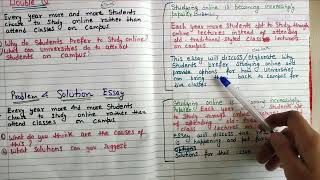 Double Q
Every year more and more Students
chose to Study online rather than
attend classes on Campus
Why do Students Prefer to Study online?
What can universities do to attract
Students on Campus
Problem & Solution Essay
Every year more and more Students
chose to Study online rather than
attend classes on Campus
What do you think are the causes of
this?
What solutions can you suggest
Studying online is becoming increasingly
Popular
Each year more Students opt to Study through
online lectures instead of attending
old-traditional styled Classic lectures
on campus
This essay will discuss/elaborate why
Students prefer Studying online and
provide options for how universities
can bring them back to campus for
live classes
Studying online
Each year
to Study through online
of attending old-
Classic lectures
essay will discuss the
options
Solutions for this